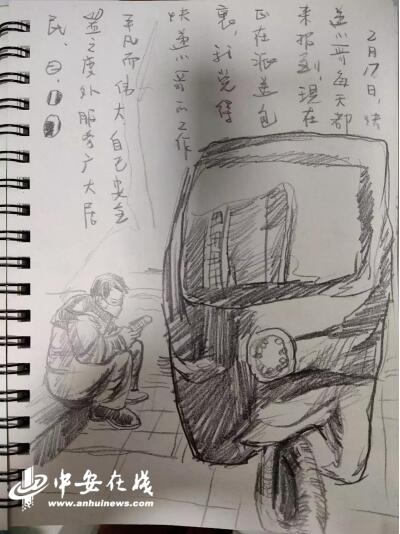 2月17日,快
递小哥每天都
来报到,现在
正在派送包
裹,我觉得
快递小哥的工作
平凡而伟大,自己安全
置之度外服务广大居
民
中安在线
www.anhuinews.com